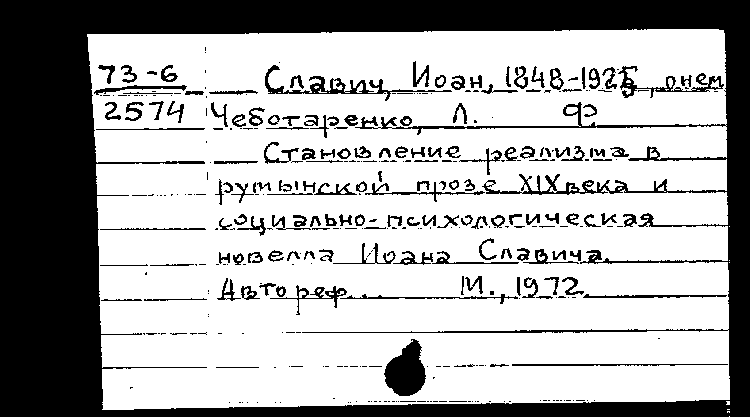 73-6 Славич, Иоан, 1848-1925, о нем
2574 Чеботаренко, Л. Ф
Становление реализма в
румынской прозе XIX века и
социально-психологическая
новелла Иоана Славича.
Автореф... М., 1972.